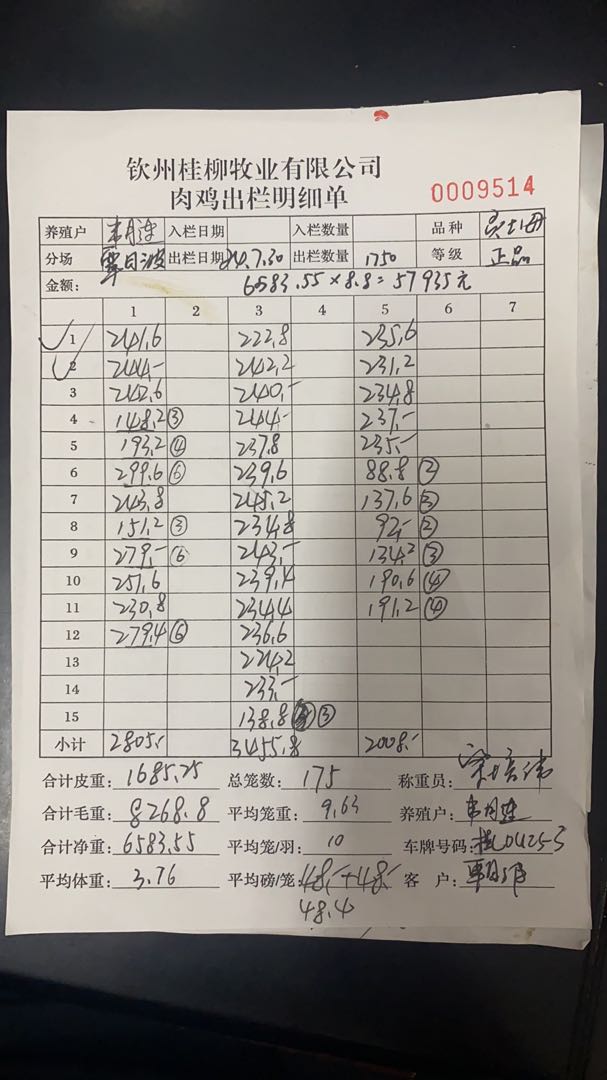 钦州桂柳牧业有限公司
肉鸡出栏明细单
0009514
养殖户 韦月连 入栏日期 入栏数量 品种
分场 覃日波 出栏日期 24.7.30 出栏数量 1750 等级 正品
金额: 6583.55×8.8=57935元
1 2 3 4 5 6 7
1 241.6 222.8 235.6
2 244.- 242.2 231.2
3 242.6 240.- 234.8
4 148.2 ③ 244.- 237.-
5 193.2 ④ 237.8 235.-
6 299.6 ⑥ 239.6 88.8 ②
7 243.8 245.2 137.6 ③
8 151.2 ③ 234.8 92.- ②
9 279.- ⑥ 243.- 134.2 ③
10 251.6 239.4 190.6 ④
11 230.8 234.4 191.2 ④
12 279.4 ⑥ 236.6
13 224.2
14 233.-
15 138.8 ③
小计 2805.- 3455.8 2008.-
合计皮重: 1685.25 总笼数: 175 称重员:
合计毛重: 8268.8 平均笼重: 9.63 养殖户: 韦月连
合计净重: 6583.55 平均笼/羽: 10 车牌号码:
平均体重: 3.76 平均磅/笼: 48.-+48.- 客 户:
48.4